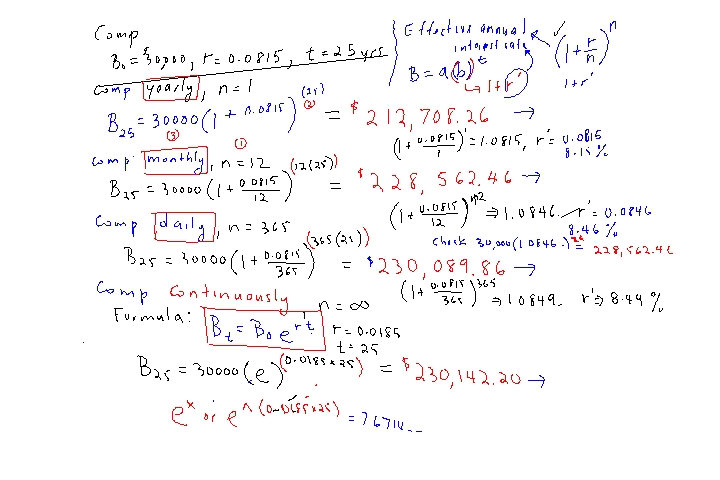 Comp
B₀ = $30,000, r = 0.0815, t = 25 yrs
Effective annual interest rate
(1 + r/n)^n
B = a(b)^t
↳ 1+r'
1+r'
Comp yearly, n = 1
B₂₅ = 30000(1 + 0.0815)^(25) = $212,708.26 →
① ② ③
(1 + 0.0815/1)^1 = 1.0815, r' = 0.0815
8.15%
Comp monthly, n = 12
B₂₅ = 30000(1 + 0.0815/12)^(12(25)) = $228,562.46 →
(1 + 0.0815/12)^12 ⇒ 1.0846.. r' = 0.0846
8.46%
Check 30,000(1.0846..)^25 = 228,562.46
Comp daily, n = 365
B₂₅ = 30000(1 + 0.0815/365)^(365(25)) = $230,089.86 →
(1 + 0.0815/365)^365 ⇒ 1.0849.. r' ⇒ 8.49%
Comp continuously n = ∞
Formula: Bₜ = B₀ e^rt
r = 0.0185
t = 25
B₂₅ = 30000(e)^(0.0185×25) = $230,142.20 →
e^x or e^(0.0185×25) = 7.6714...